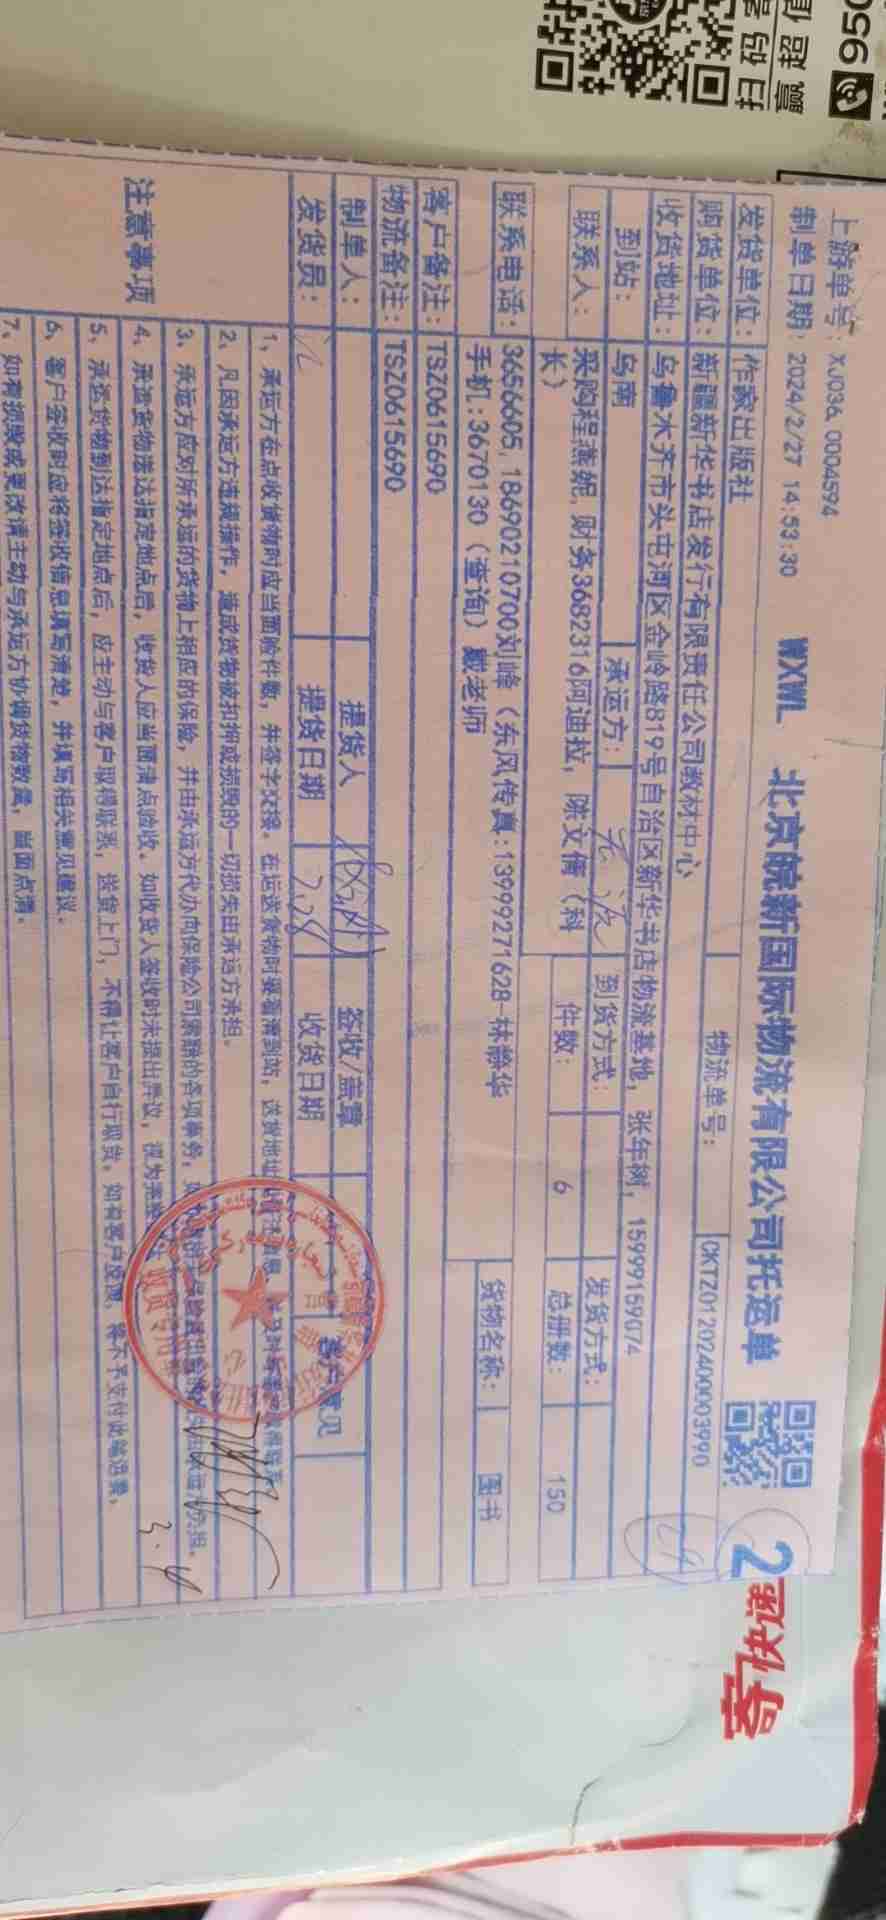 扫码寄
赢超值
950
上游单号: XJ036, 0004594
制单日期: 2024/2/27 14:53:30
WXWL 北京皖新国际物流有限公司托运单
2
发货单位: 作家出版社
物流单号: CKTZ01202400003990
购货单位: 新疆新华书店发行有限责任公司教材中心
收货地址: 乌鲁木齐市头屯河区金岭路819号自治区新华书店物流基地, 张年树, 15999159074
到站: 乌南 承运方: 到货方式: 发货方式:
联系人: 采购程燕妮, 财务3682316阿迪拉, 陈文倩（科长） 件数: 6 总册数: 150
联系电话: 3656605, 18690210700刘峰（东风传真:13999271628-林静华 手机:3670130（查询）戴老师 货物名称: 图书
客户备注: TSZ0615690
物流备注: TSZ0615690
制单人: 提货人 签收/盖章
发货员: 提货日期 2.28 收货日期
注意事项
1、承运方在点收货物时应当面验件数, 并签字交接, 在运送货物时要看清到站, 送货地址
2、凡因承运方违规操作, 造成货物被扣押或损毁的一切损失由承运方承担.
3、承运方应对所承运的货物上相应的保险, 并由承运方代办向保险公司索赔的各项事务,
4、承运货物送达指定地点后, 收货人应当面清点验收. 如收货人签收时未提出异议, 视为
5、承运货物到达指定地点后, 应主动与客户取得联系, 送货上门, 不得让客户自行取货, 如有客户反馈, 将不予支付此笔运费.
6、客户签收时应将签收信息填写清楚, 并填写相关意见建议.
7、如有损毁或更改请主动与承运方协调货物数量, 当面点清.
寄快递